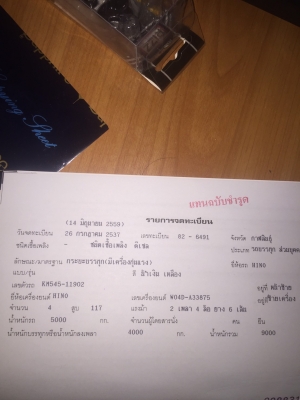 แทนฉบับชำรุด
(14 มิถุนายน 2559) รายการจดทะเบียน
วันจดทะเบียน 26 กรกฎาคม 2537 เลขทะเบียน 82 - 6491 จังหวัด กาฬสินธุ์
ชนิดเชื้อเพลิง - ชนิดเชื้อเพลิง ดีเซล ประเภท รถบรรทุก ส่วนบุคคล
ลักษณะ/มาตรฐาน กระบะบรรทุก(มีเครื่องทุ่นแรง) ยี่ห้อรถ HINO
แบบ/รุ่น สี น้ำเงิน เหลือง
เลขตัวรถ KM545-11902 อยู่ที่
ยี่ห้อเครื่องยนต์ HINO เลขเครื่องยนต์ W04D-A33875 อยู่ที่ ซ้ายเครื่อง
จำนวน 4 สูบ 117 แรงม้า 2 เพลา 4 ล้อ ยาง 6 เส้น
น้ำหนักรถ 5000 กก. จำนวนผู้โดยสารนั่ง คน ยืน
น้ำหนักบรรทุกหรือน้ำหนักลงเพลา 4000 กก. น้ำหนักรวม 9000